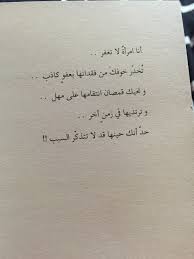 أنا امرأة لا تغفر . .
تُخدّر خوفك من فقدانها بعفوٍ كاذب . .
و تحيك قمصان انتقامها على مهل . .
و ترتديها في زمنٍ آخر . .
حدّ أنك حينها قد لا تتذكّر السبب !!